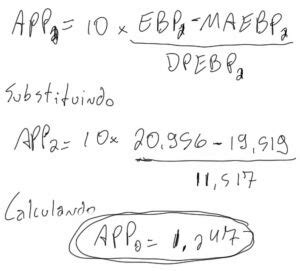 APP₂ = 10 × EBP₂ - MAEBP₂
DPEBP₂
Substituindo
APP₂ = 10 × 20,956 - 19,519
11,517
Calculando
APP₀ = 1,247